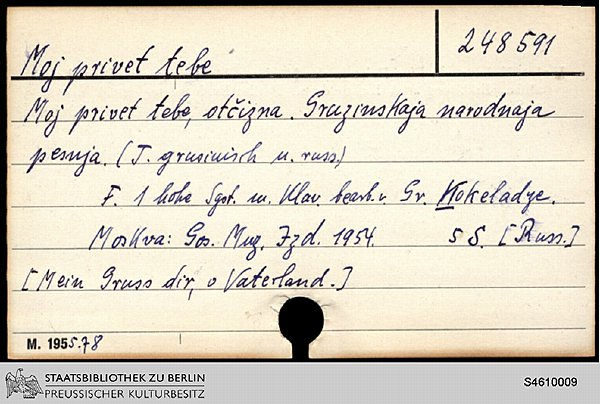 Moj privet tebe
248 591
Moj privet tebe, otčizna. Gruzinskaja narodnaja
pesnja. (T. grusinisch u. russ.)
F. 1 hohe Sgst. m. Klav. bearb. v. Gr. Kokeladze.
Moskva: Gos. Muz. Izd. 1954. 5 S. [Russ.]
[Mein Gruss dir, o Vaterland.]
M. 1955.78
STAATSBIBLIOTHEK ZU BERLIN
PREUSSISCHER KULTURBESITZ
S4610009